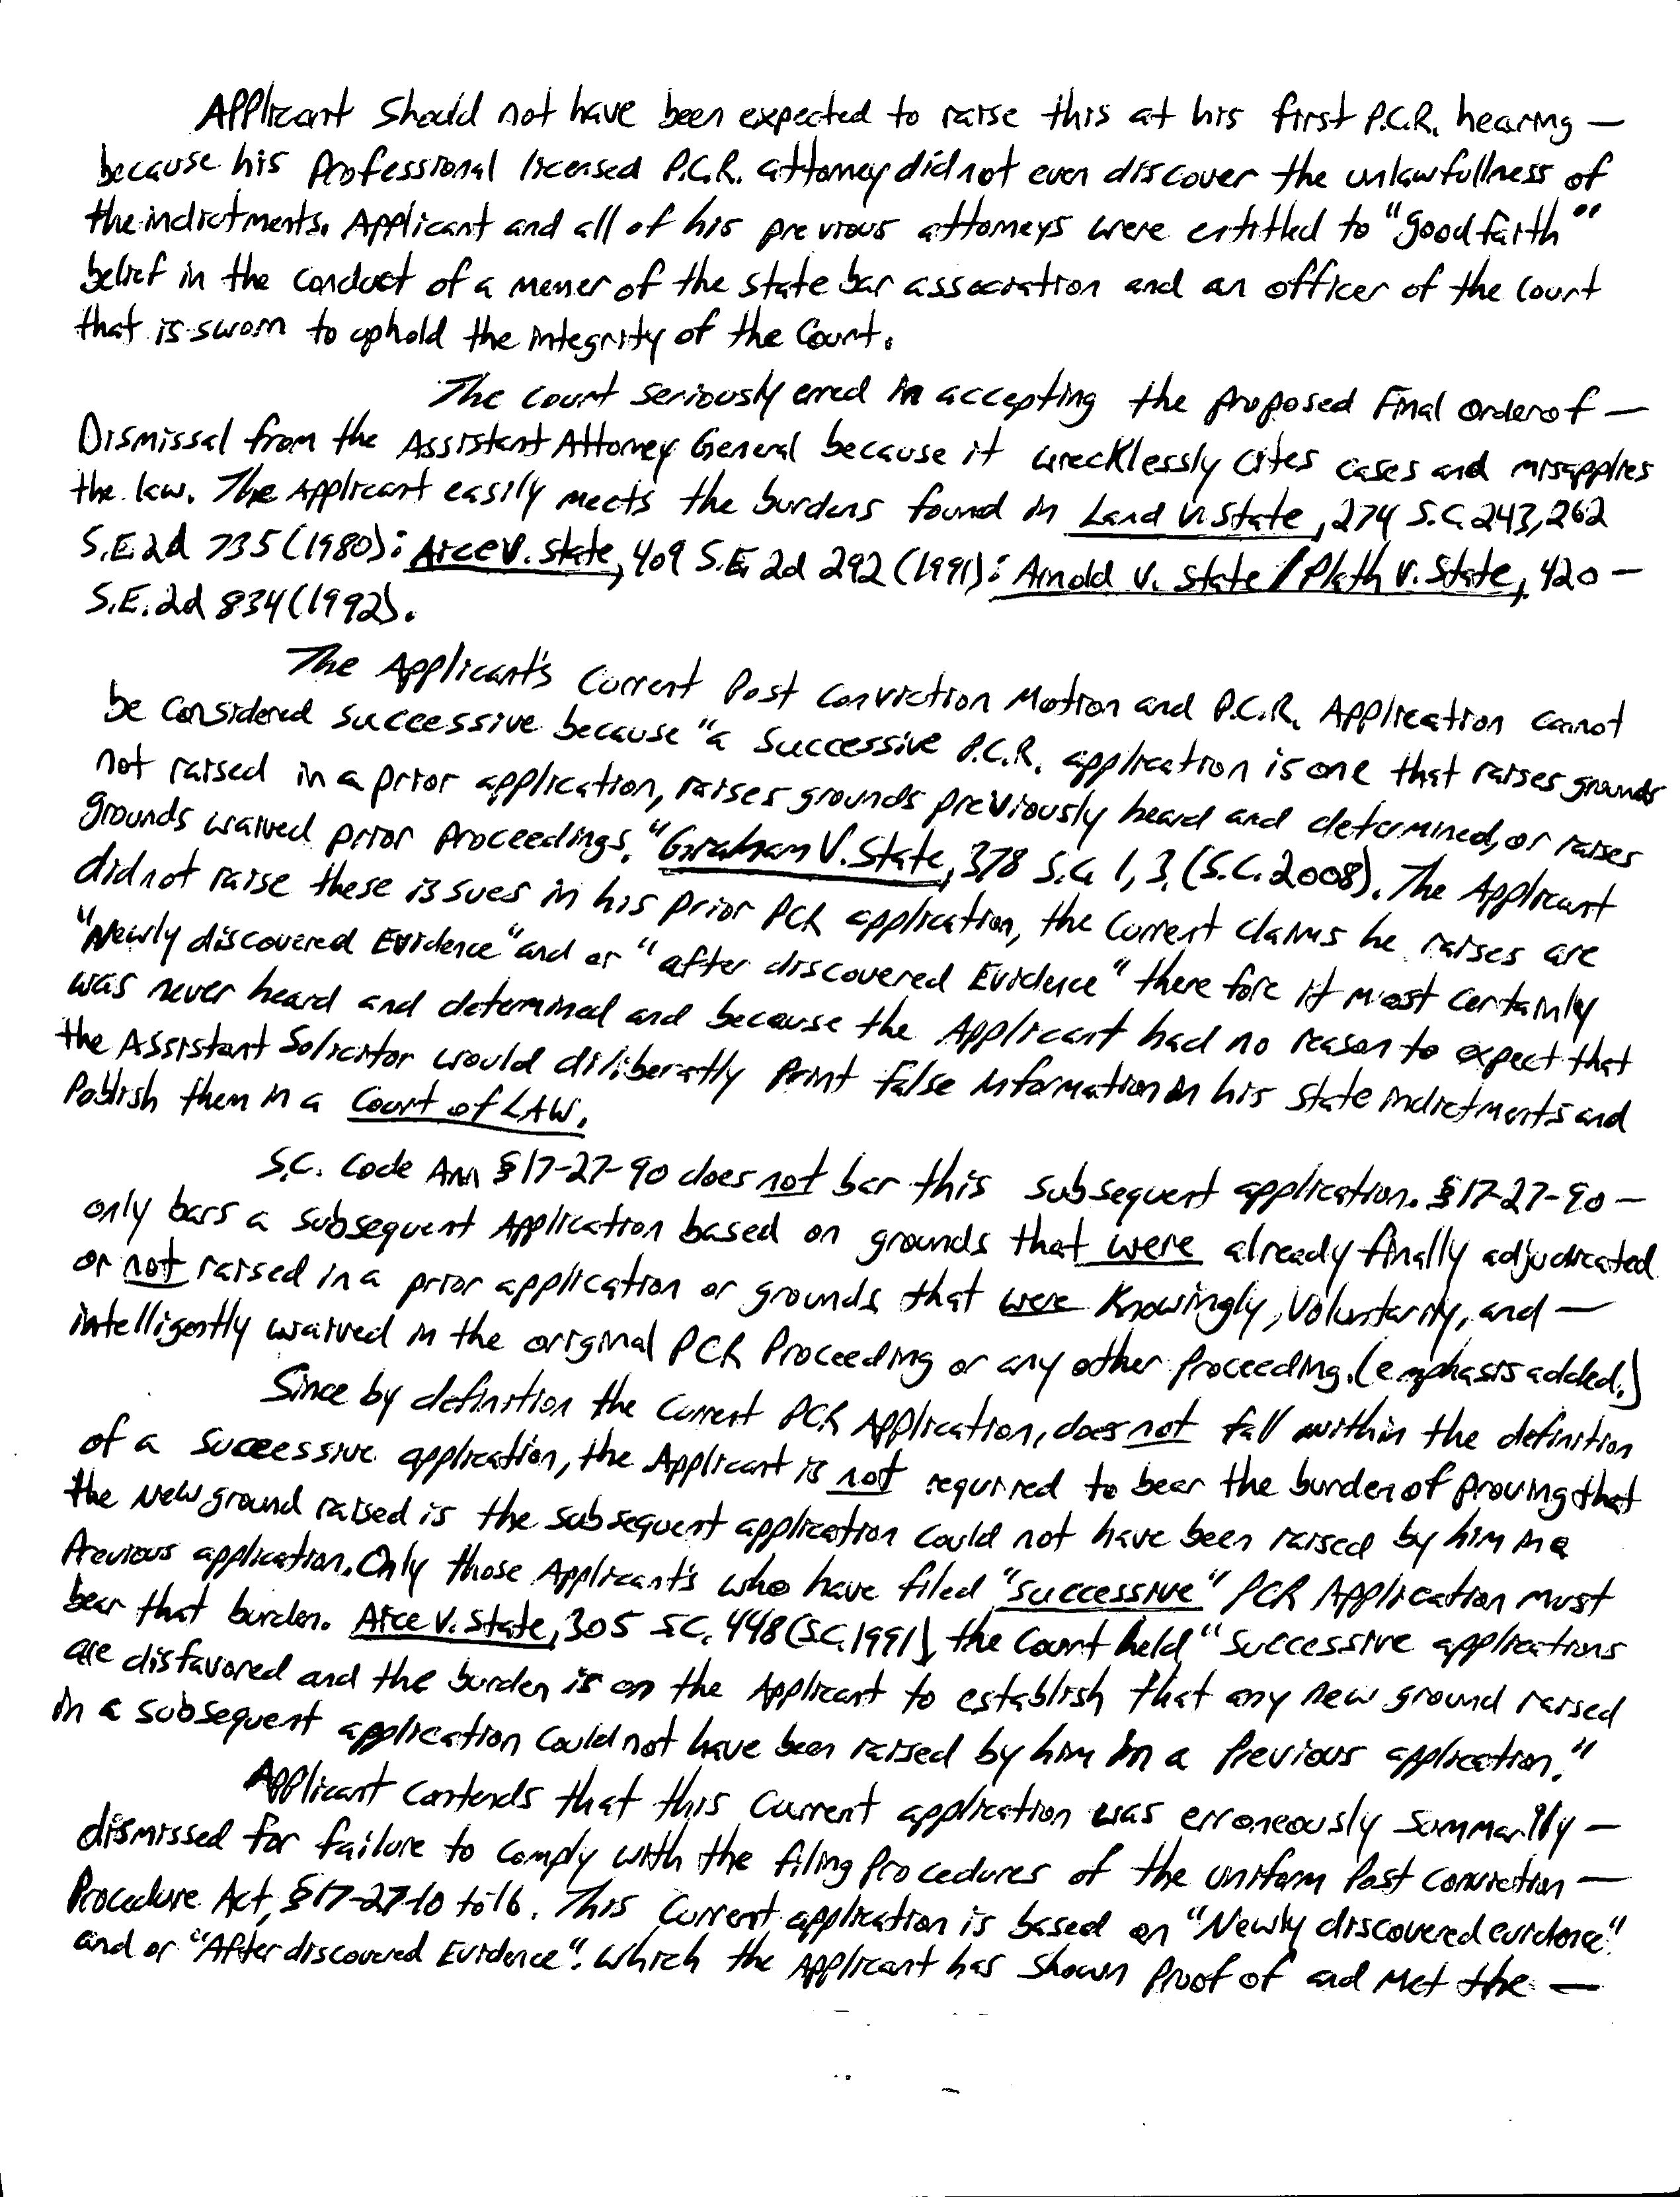 Applicant should not have been expected to raise this at his first P.C.R. hearing —
because his Professional licensed P.C.R. attorney did not even discover the unlawfullness of
the indictments. Applicant and all of his previous attorneys were entitled to "good faith"
belief in the conduct of a memer of the state bar association and an officer of the Court
that is sworn to uphold the integrity of the Court.
The Court seriously erred in accepting the proposed Final Order of —
Dismissal from the Assistant Attorney General because it wrecklessly cites cases and misapplies
the law. The Applicant easily meets the burdens found in Land v. State, 274 S.C. 243, 262
S.E. 2d 735 (1980): Arce v. State, 409 S.E. 2d 292 (1991): Arnold v. State / Plath v. State, 420 —
S.E. 2d 834 (1992).
The Applicant's Current Post Conviction Motion and P.C.R. Application cannot
be considered successive because "a successive P.C.R. application is one that raises grounds
not raised in a prior application, raises grounds previously heard and determined, or raises
grounds waived prior proceedings." Graham v. State, 378 S.C. 1, 3. (S.C. 2008). The Applicant
did not raise these issues in his prior PCR application, the Current claims he raises are
"Newly discovered Evidence" and or "after discovered Evidence" there fore it most certainly
was never heard and determined and because the Applicant had no reason to expect that
the Assistant Solicitor would diliberatly Print false information in his state indictments and
Publish them in a Court of LAW.
S.C. Code Ann §17-27-90 does not bar this subsequent application. §17-27-90 —
only bars a subsequent Application based on grounds that were already finally adjudicated
or not raised in a prior application or grounds that were Knowingly, Voluntarily, and —
intelligently waived in the original PCR Proceeding or any other proceeding. (emphasis added.)
Since by definition the Current PCR Application, does not fall within the definition
of a successive application, the Applicant is not required to bear the burden of proving that
the New ground raised is the subsequent application could not have been raised by him in a
Previous application. Only those Applicant's who have filed "successive" PCR Application must
bear that burden. Arce v. State, 305 S.C. 448 (S.C. 1991), the Court held "successive applications
are disfavored and the burden is on the Applicant to establish that any new ground raised
in a subsequent application could not have been raised by him in a Previous application."
Applicant contends that this Current application was erroneously summarily —
dismissed for failure to comply with the filing procedures of the uniform Post Conviction —
Procedure Act, §17-27-10 to 16. This Current application is based on "Newly discovered evidence"
and or "After discovered Evidence". Which the Applicant has shown proof of and Met the —